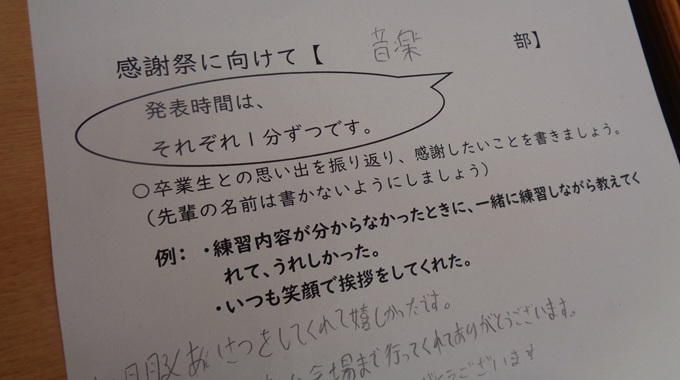 感謝祭に向けて【 音楽 部】
発表時間は、
それぞれ1分ずつです。
○卒業生との思い出を振り返り、感謝したいことを書きましょう。
(先輩の名前は書かないようにしましょう)
例:・練習内容が分からなかったときに、一緒に練習しながら教えてく
れて、うれしかった。
・いつも笑顔で挨拶をしてくれた。
あいさつをしてくれて嬉しかったです。
会場まで行ってくれてありがとうございます。
とうございます